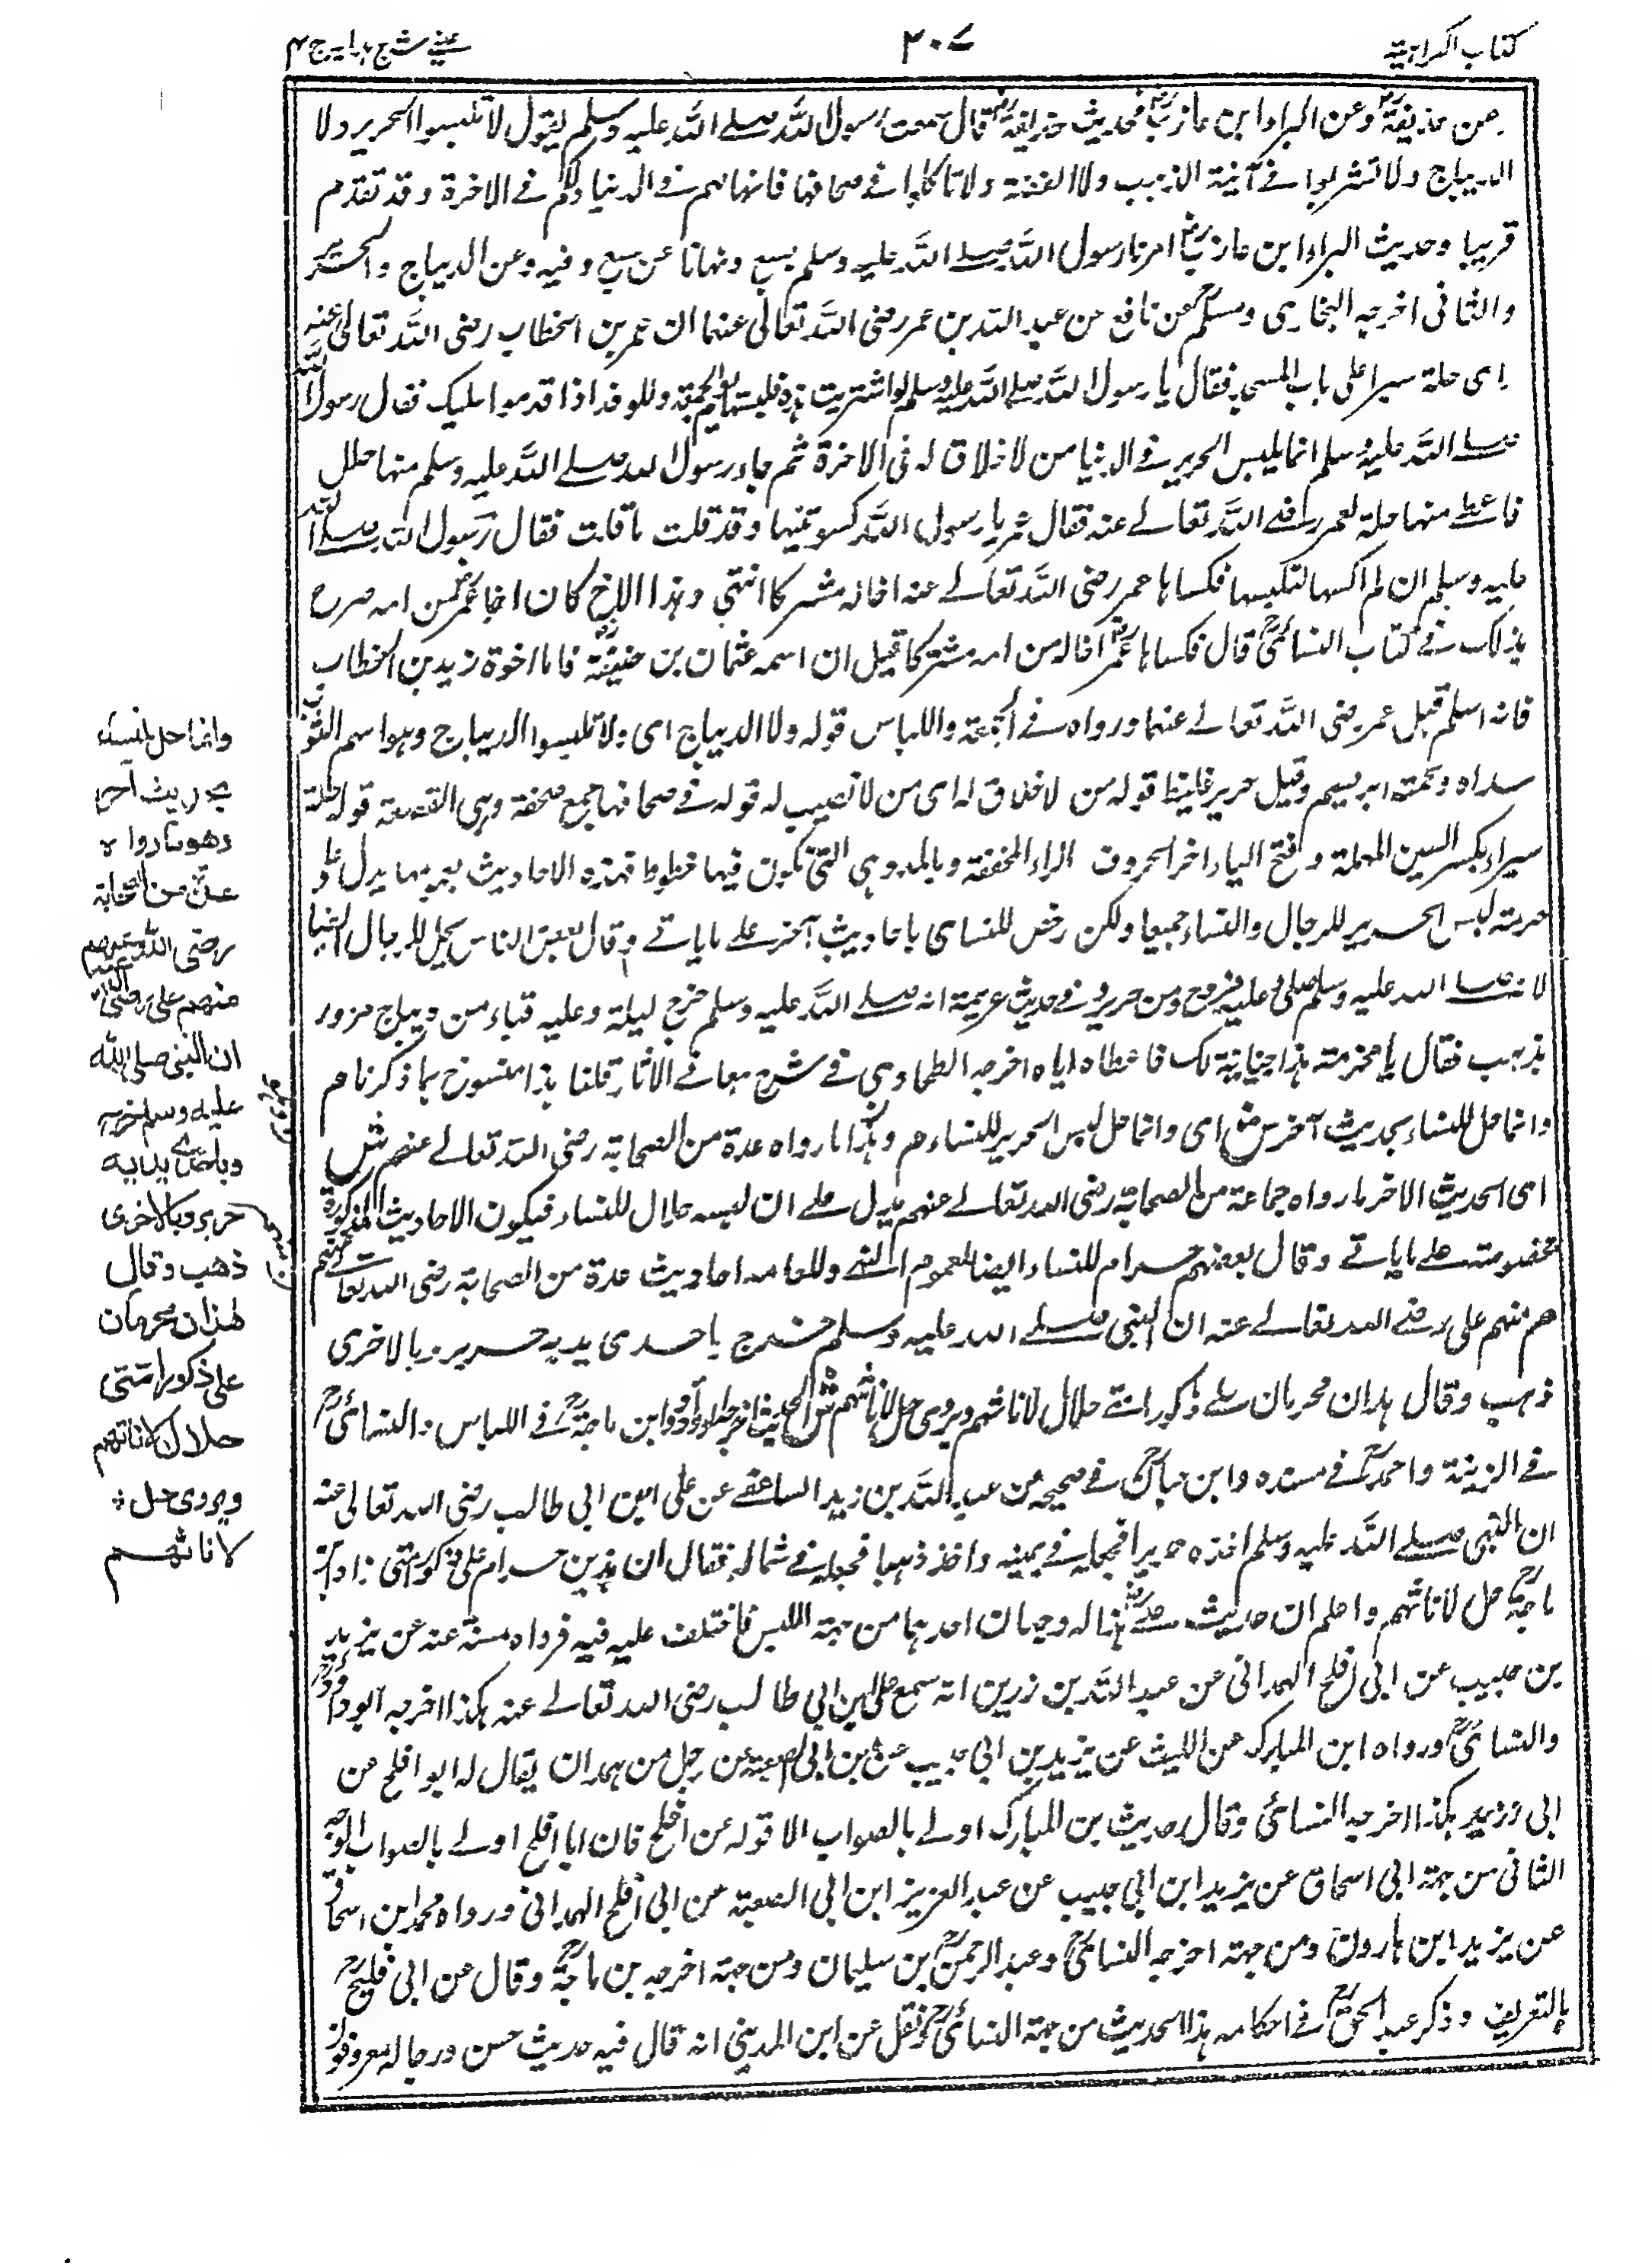 كتاب الكراهية
۲۰۷
عيني شرح هدايه ج ۴
عن حذيفة رض وعن البراء ابن عازب رض فحديث حذيفة رض قال سمعت رسول الله صلے الله عليه وسلم يقول لا تلبسوا الحرير ولا
الديباج ولا تشربوا فے آنية الذهب ولا الفضة ولا تاكلوا فے صحافها فانها لهم فے الدنيا ولكم فے الاخرة وقد تقدم
قريبا وحديث البراء ابن عازب رض امرنا رسول الله صلے الله عليه وسلم بسبع ونهانا عن سبع وفيه وعن الديباج والحرير
والثانى اخرجه البخارى ومسلم عن نافع عن عبد الله بن عمر رضى الله تعالى عنهما ان عمر بن الخطاب رضى الله تعالى عنه
راى حلة سيرا على باب المسجد فقال يا رسول الله صلے الله عليه وسلم لو اشتريت هذه فلبستها يوم الجمعة وللوفد اذا قدموا عليك فقال رسول الله
صلے الله عليه وسلم انما يلبس الحرير فے الدنيا من لا خلاق له فى الاخرة ثم جاء رسول الله صلے الله عليه وسلم منها حلل
فاعطے منها حلة لعمر رضے الله تعالے عنه فقال عمر يا رسول الله كسوتنيها وقد قلت ما قلت فقال رسول الله صلے الله
عليه وسلم ان لم اكسها لتلبسها فكساها عمر رضى الله تعالے عنه اخاله مشركا انتهى وهذا الاخ كان اخا عمر من امه صرح
بذلك فے كتاب النسائى رح قال فكساها عمر رض اخاله من امه مشركا قيل ان اسمه عثمان بن حنيفة فاما اخوة زيد بن الخطاب
فانه اسلم قبل عمر رضى الله تعالے عنهما ورواه فے الجمعة واللباس قوله ولا الديباج اى ولا تلبسوا الديباج وهو اسم الثوب
سداه ولحمته ابريسم وقيل حرير غليظ قوله من لا خلاق له اى من لا نصيب له قوله فے صحافها جمع صحفة وهى القصعة قوله حلة
سيراء بكسر السين المهملة وفتح الياء اخر الحروف الراء المخففة وبالمد وهى التى تكون فيها خطوط فهذه الاحاديث بعمومها يدل على
حرمة لبس الحرير للرجال والنساء جميعا ولكن رخص للنساى باحاديث آخر على ما ياتے وقال بعض الناس يحل للرجال ايضا
لانه صلے الله عليه وسلم صلى وعليه فروج من حرير وفے حديث عربية انه صلے الله عليه وسلم خرج ليلة وعليه قباء من ديباج مزرر
بذهب فقال يا مخرمة هذا خبانية لك فاعطاه اياه اخرجه الطحاوى فے شرح معانے الاثار قلنا هذا منسوخ بما ذكرنا هم
وانما حل للنساء بحديث آخر ش اى وانما حل لبس الحرير للنساء هم وهذا ما رواه عدة من الصحابة رضى الله تعالے عنهم ش
اى الحديث الاخر ما رواه جماعة من الصحابة رضى الله تعالے عنهم يدل على ان لبسه حلال للنساء فيكون الاحاديث المذكورة
مخصوصة على ما ياتے وقال بعضهم حرام للنساء ايضا لعموم النهى وللعامه احاديث عدة من الصحابة رضى الله تعالے عنهم
هم منهم على رضے الله تعالے عنه ان النبى صلے الله عليه وسلم خرج باحدى يديه حرير وبالاخرى
ذهب وقال هذان محرمان على ذكور امتے حلال لاناثهم ويروى حل لاناثهم ش الحديث اخرجه ابو داؤد وابن ماجة رح فے اللباس والنسائى رح
فے الزينة واحمد رح فے مسنده وابن حبان رح فے صحيحه عن عبد الله بن زيد الساعقے عن على ابن ابى طالب رضى الله تعالى عنه
ان النبى صلے الله عليه وسلم اخذه حريرا فجعله فے يمينه واخذ ذهبا فجعله فے شماله فقال ان هذين حرام على ذكور امتى زاد ابن
ماجة رح حل لاناثهم واعلم ان حديث على رض هذا له وجهان احدهما من جهة الليس فاختلف عليه فيه فرواه مسنة عنه عن يزيد
بن حبيب عن ابى افلح الهمدانى عن عبد الله بن زرين انه سمع على ابن ابي طالب رضى الله تعالے عنه هكذا اخرجه ابو داؤد رح
والنسائى رح ورواه ابن المبارك عن الليث عن يزيد بن ابى حبيب عن بن ابى الصعبة عن رجل من همدان يقال له ابو افلح عن
ابى وزير هكذا اخرجه النسائى وقال حديث بن المبارك اولے بالصواب الا قوله عن افلح فان ابا افلح اولے بالصواب الوجه
الثانى من جهة ابى اسحاق عن يزيد ابن ابى حبيب عن عبد العزيز ابن ابى الصعبة عن ابى افلح الهمدانى ورواه محمد ابن اسحاق
عن يزيد ابن هارون ومن جهته اخرجه النسائى رح وعبد الرحمن رح بن سليمان ومن جهته اخرجه بن ماجة رح وقال عن ابى فليح رح
بالتعريف وذكر عبد الحق رح فے احكامه هذا الحديث من جهة النسائى رح ونقل عن ابن المدينى انه قال فيه حديث حسن ورجاله معروفون
وانما حل للنساء
بحديث آخر
وهو ما رواه
عدة من الصحابة
رضى الله عنهم
منهم على رضى الله عنه
ان النبى صلى الله
عليه وسلم خرج
وباحدى يديه
حرير وبالاخرى
ذهب وقال
هذان محرمان
على ذكور امتى
حلال لاناثهم
ويروى حل
لاناثهم